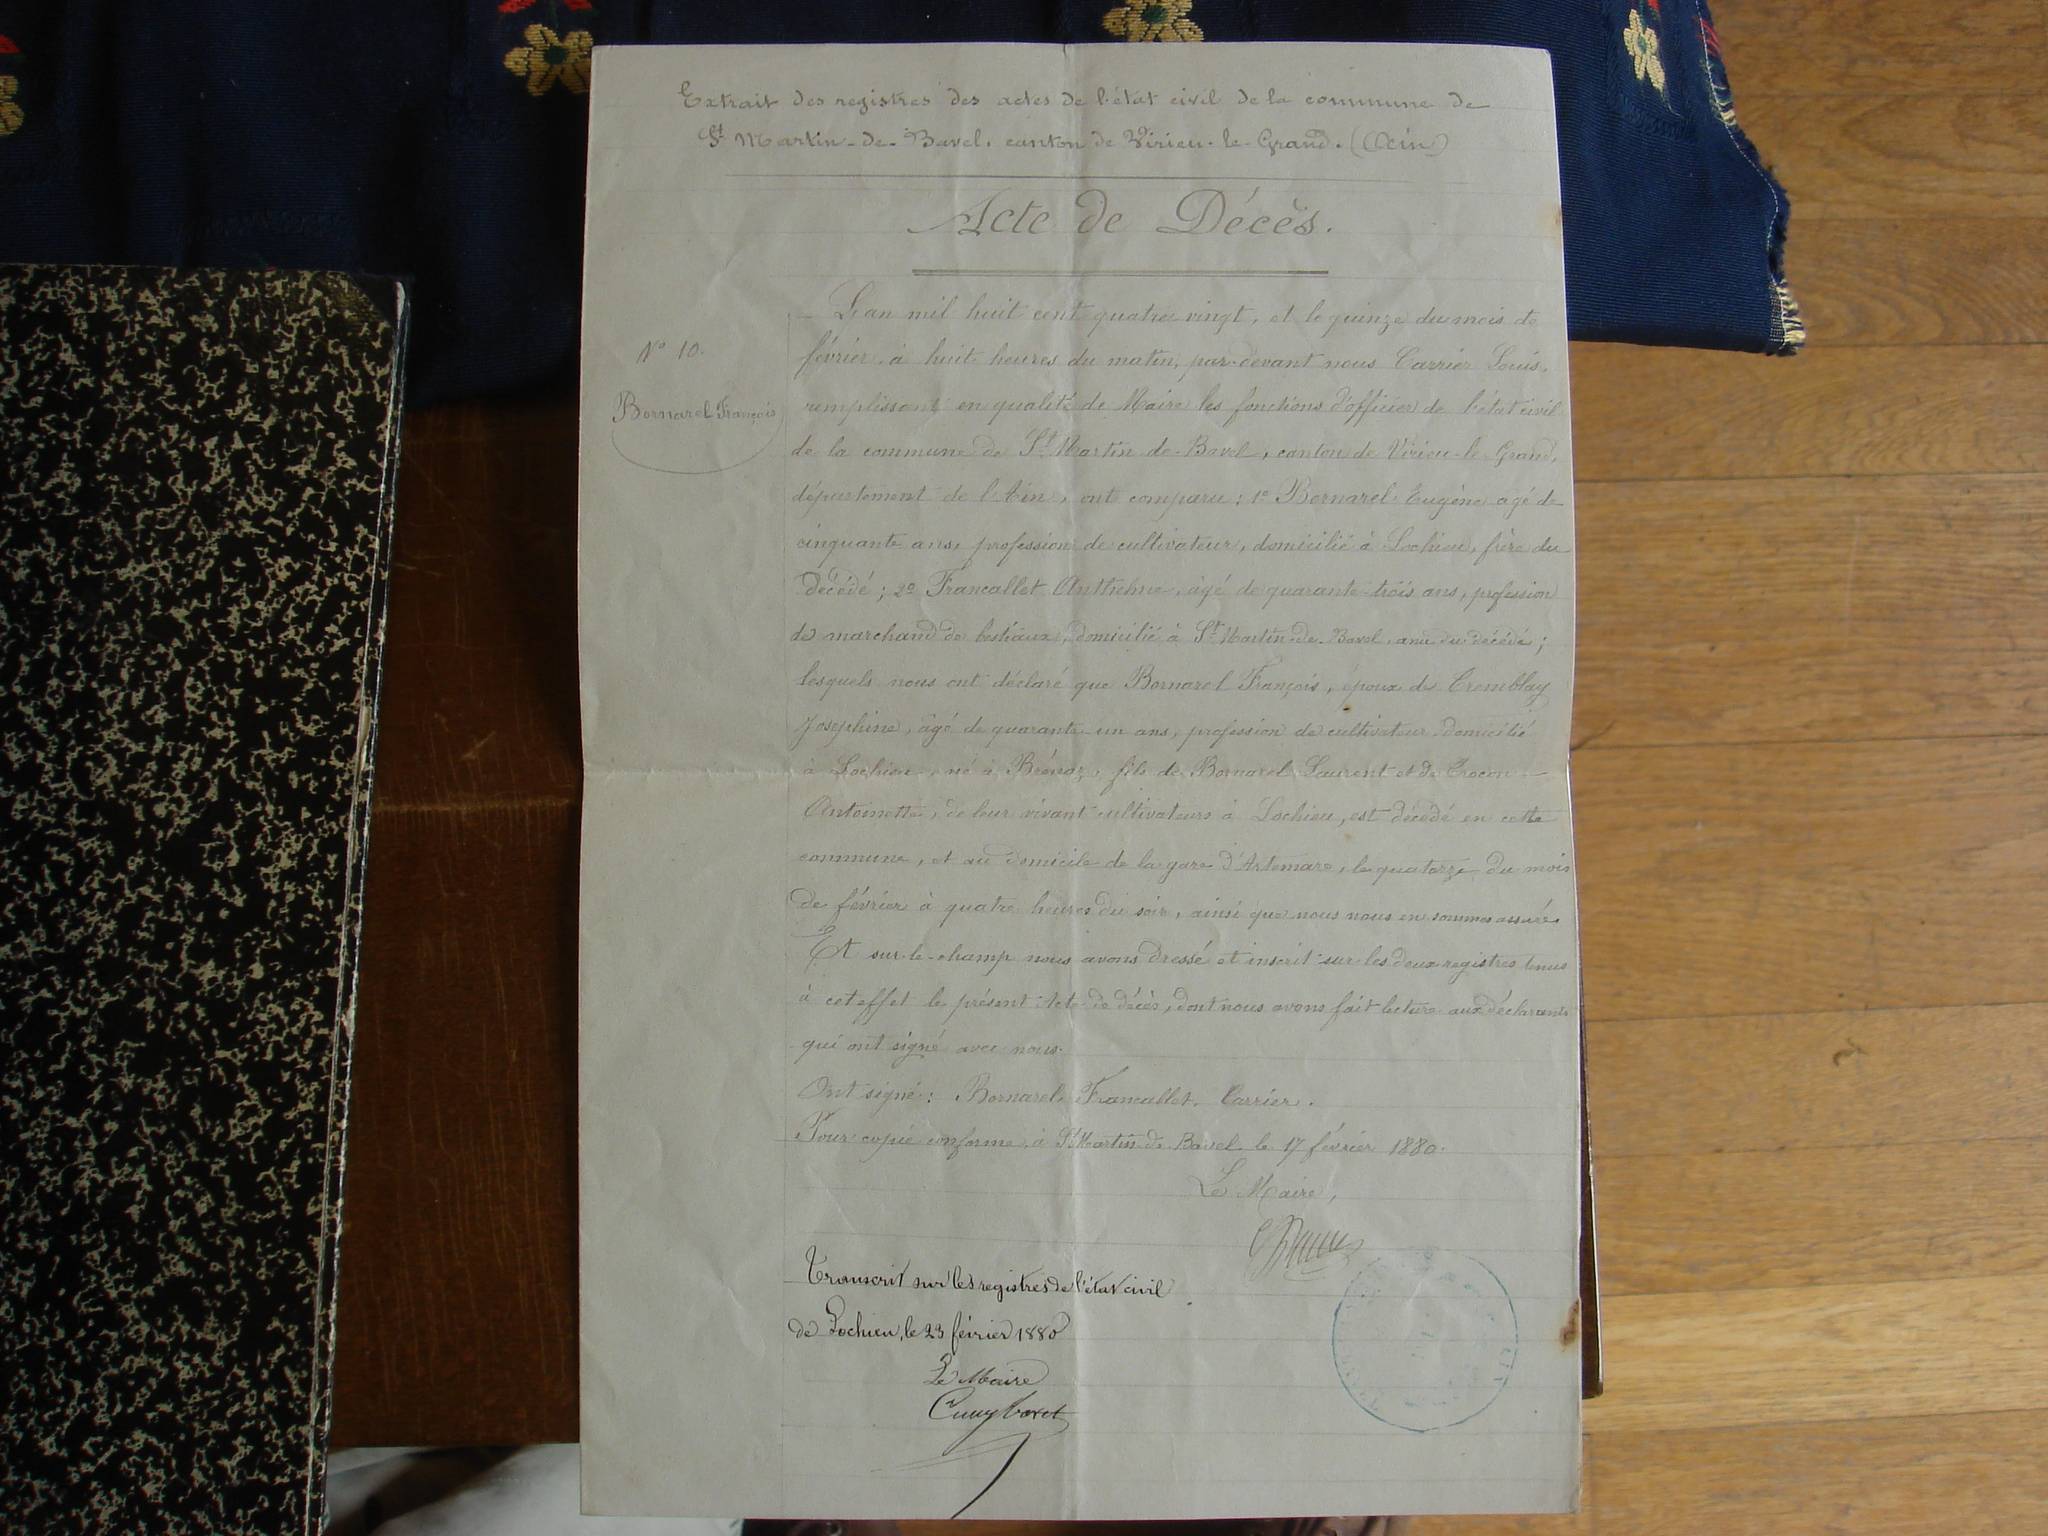 Extrait des registres des actes de l'état civil de la commune de
St Martin-de-Bavel, canton de Virieu-le-Grand. (Ain)
Acte de Décès.
N° 10.
Bornarel François
L'an mil huit cent quatre vingt, et le quinze du mois de
février, à huit heures du matin, par-devant nous Carrier Louis,
remplissant en qualité de Maire les fonctions d'officier de l'état civil
de la commune de St Martin-de-Bavel, canton de Virieu-le-Grand,
département de l'Ain, ont comparu : 1° Bornarel Eugène agé de
cinquante ans, profession de cultivateur, domicilié à Lochieu, frère du
décédé ; 2° Francallet Anthelme, âgé de quarante-trois ans, profession
de marchand de bestiaux, domicilié à St Martin-de-Bavel, ami du décédé ;
lesquels nous ont déclaré que Bornarel François, époux de Tremblay
Josephine, âgé de quarante-un ans, profession de cultivateur domicilié
à Lochieu, né à Brénaz, fils de Bornarel Laurent et de Trocon
Antoinette, de leur vivant cultivateurs à Lochieu, est décédé en cette
commune, et au domicile de la gare d'Artemare, le quatorze du mois
de février à quatre heures du soir, ainsi que nous nous en sommes assuré.
Et sur-le-champ nous avons dressé et inscrit sur les deux registres tenus
à cet effet le présent Acte de décès, dont nous avons fait lecture aux déclarants
qui ont signé avec nous.
Ont signé : Bornarel, Francallet, Carrier.
Pour copie conforme, à St Martin-de-Bavel le 17 février 1880.
Le Maire,
Transcrit sur les registres de l'état civil
de Lochieu, le 23 février 1880
Le Maire